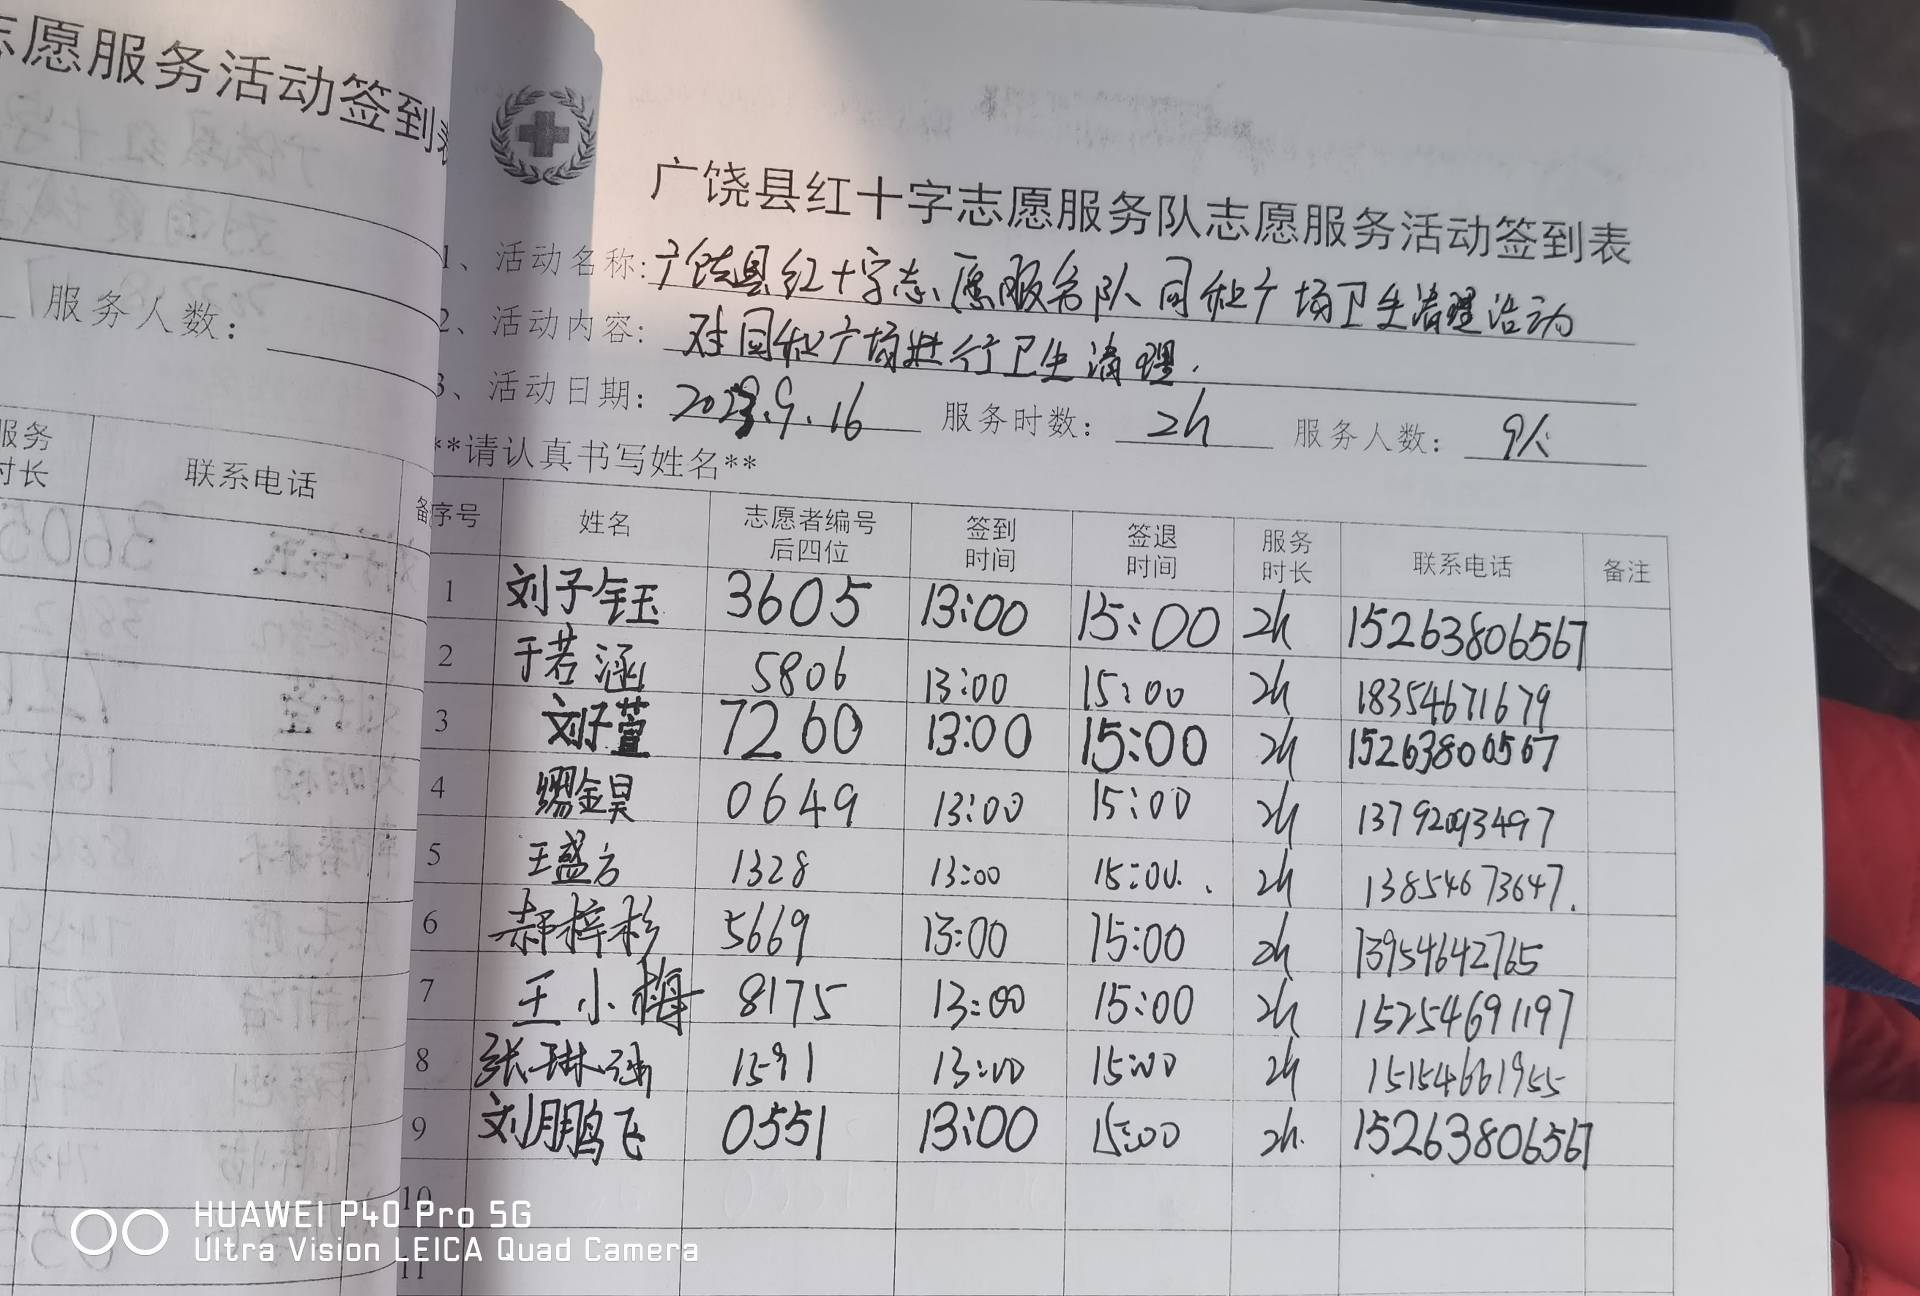 志愿服务活动签到表
服务人数：
服务
时长
联系电话
备
广饶县红十字志愿服务队志愿服务活动签到表
1、活动名称:广饶县红十字志愿服务队同和广场卫生清理活动
2、活动内容: 对同和广场进行卫生清理.
3、活动日期: 2023.9.16 服务时数: 2h 服务人数: 9人
**请认真书写姓名**
序号 姓名 志愿者编号后四位 签到时间 签退时间 服务时长 联系电话 备注
1 刘子钰 3605 13:00 15:00 2h 15263806567
2 于若涵 5806 13:00 15:00 2h 18354671679
3 刘子萱 7260 13:00 15:00 2h 15263806567
4 缪金昊 0649 13:00 15:00 2h
5 王盛方 1328 13:00 15:00. 2h 13854673647.
6 郝梓杉 5669 13:00 15:00 2h 13954642765
7 王小梅 8175 13:00 15:00 2h 15254691197
8 张琳涵 1591 13:00 15:00 2h 15154661955
9 刘鹏飞 0551 13:00 15:00 2h. 15263806567
10
11
HUAWEI P40 Pro 5G
Ultra Vision LEICA Quad Camera